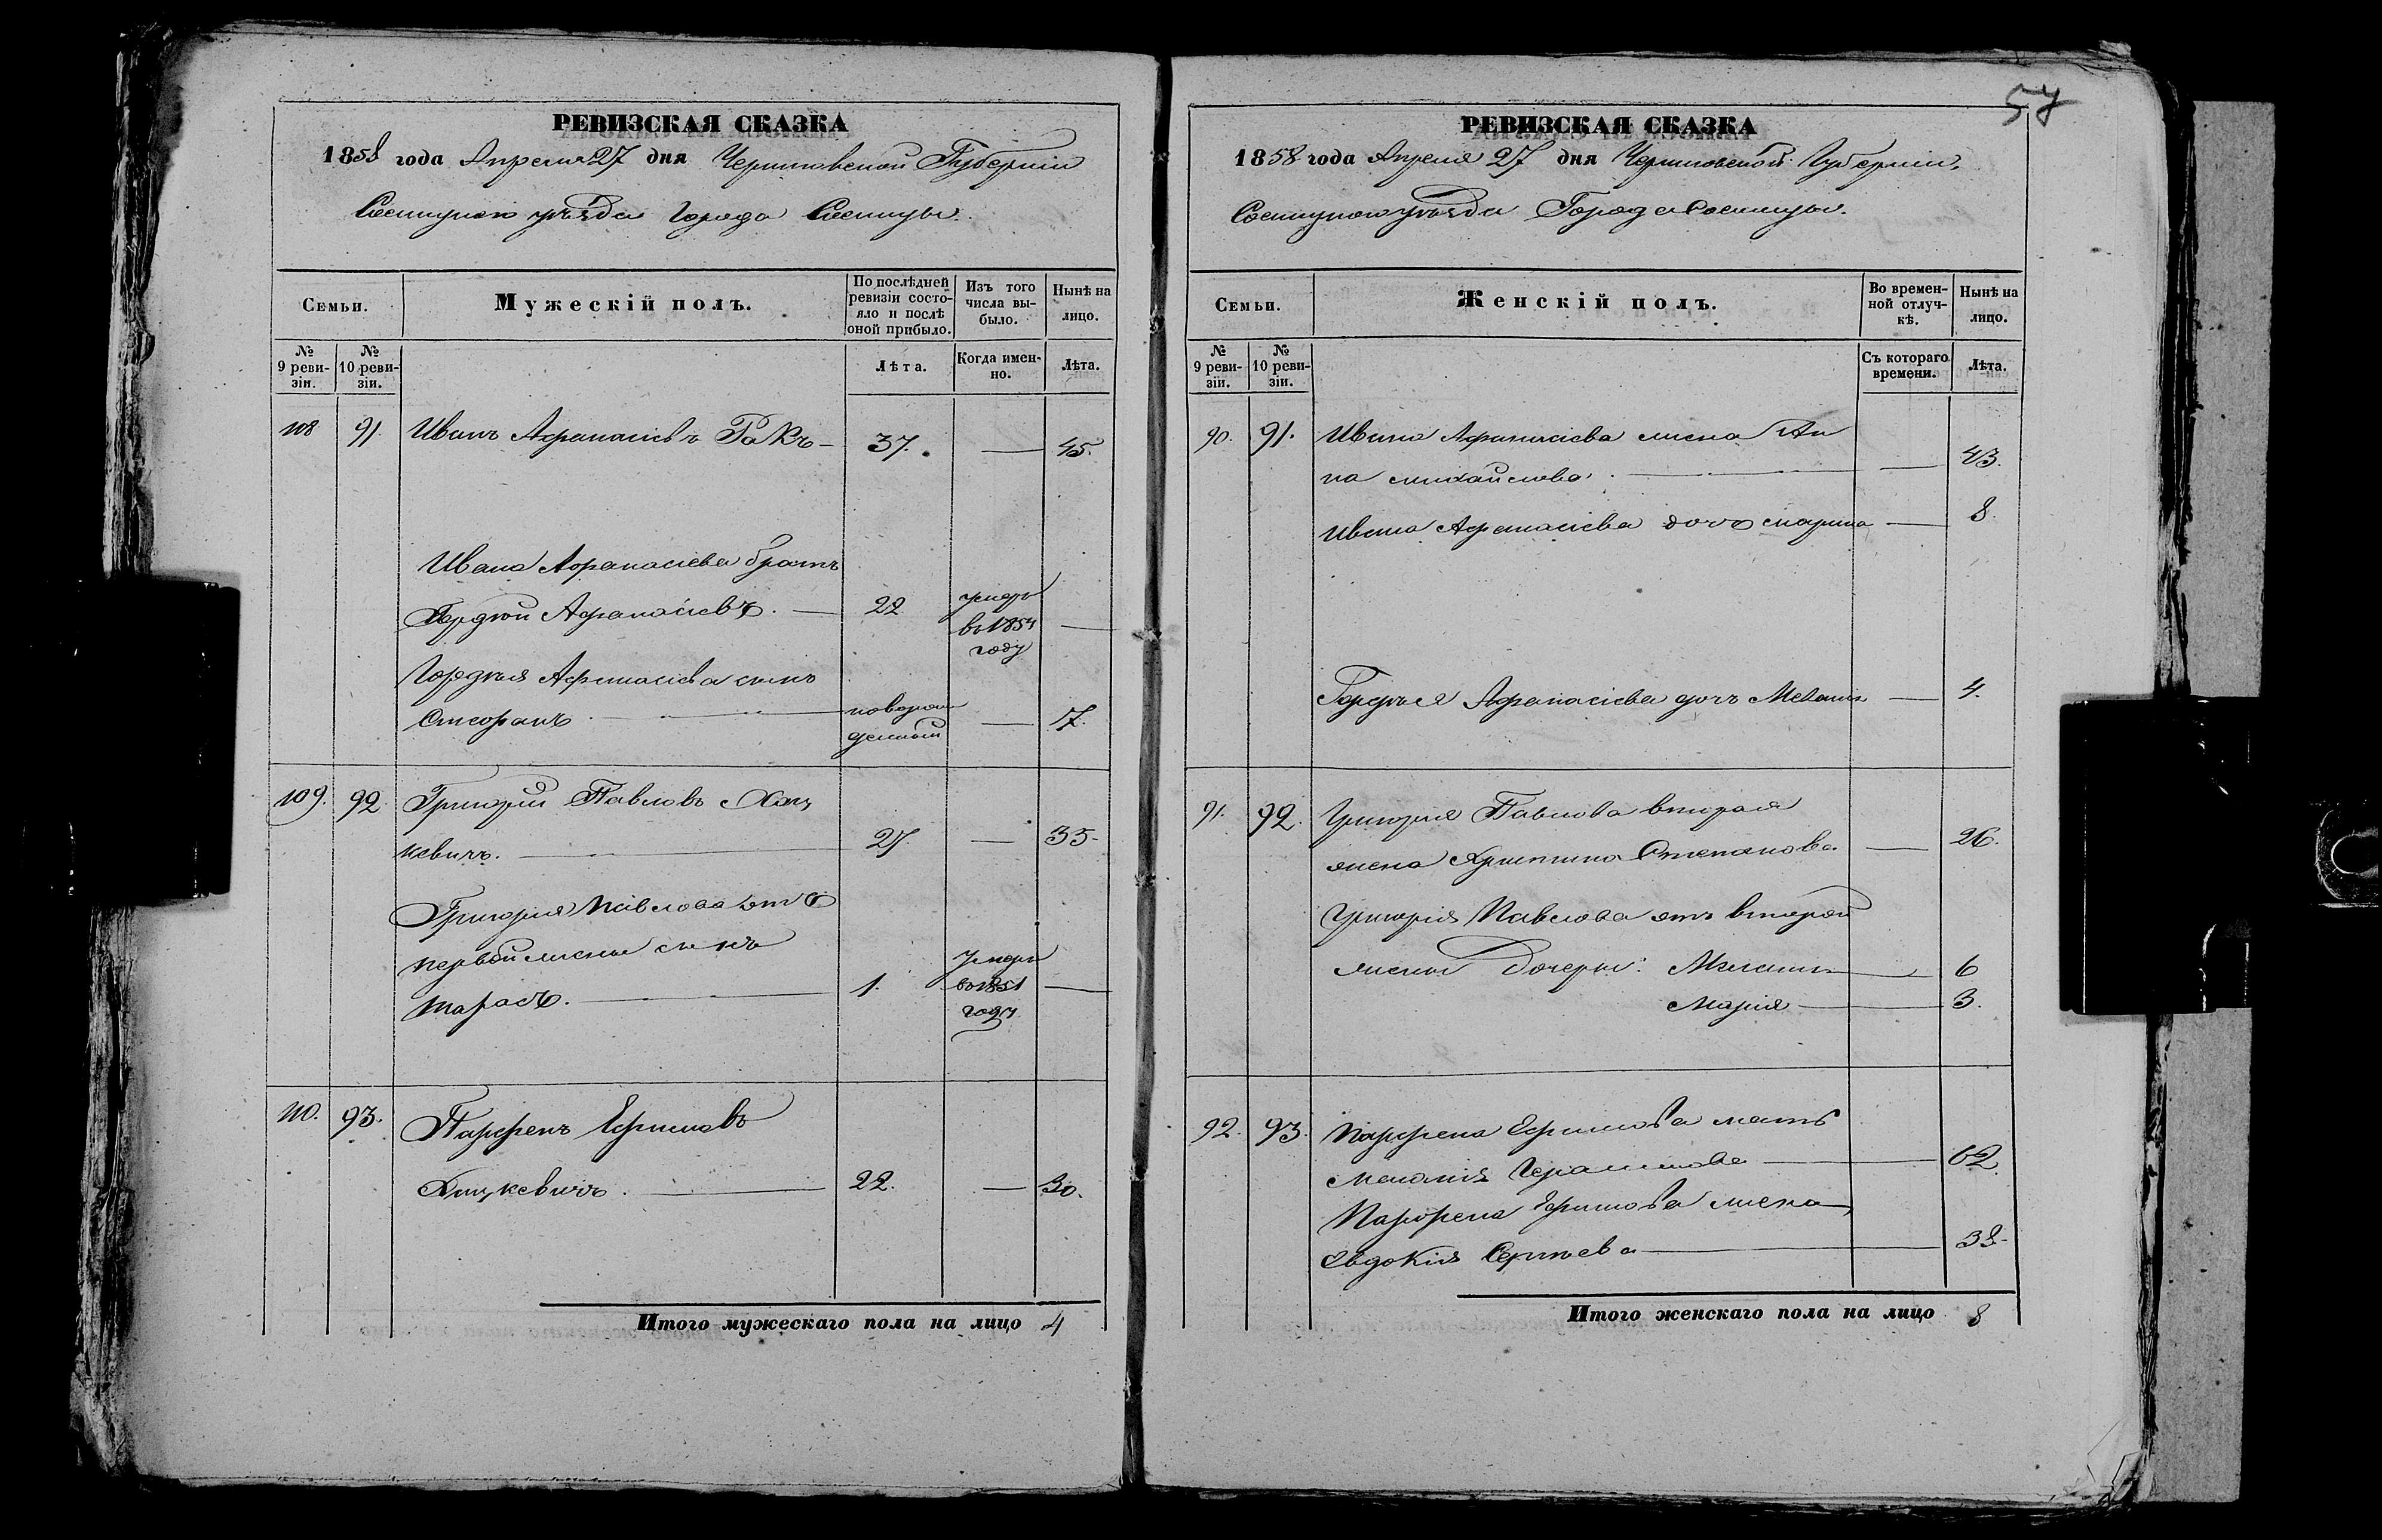 57
РЕВИЗСКАЯ СКАЗКА
1858 года Апреля 27 дня Черниговской Губерніи
Сосницкого уѣзда города Сосницы.
Семьи.
Мужескій полъ.
По послѣдней ревизіи состояло и послѣ оной прибыло.
Изъ того числа выбыло.
Нынѣ на лицо.
№ 9 ревизіи.
№ 10 ревизіи.
Лѣта.
Когда именно.
Лѣта.
108 91. Иванъ Афанасіевъ Ракъ — 37. — 45.
Ивана Афанасіева братъ
Гордѣй Афанасіевъ. — 22 умеръ в 1854 году —
Гордѣя Афанасіева сынъ
Стефанъ — новорожденный — 7.
109. 92 Григорій Павловъ
кевичъ. — 27. — 35-
Григорія Павлова отъ
первой жены сынъ
Тарасъ. — 1. умеръ в 1851 году —
110. 93. Парфенъ Ефимовъ
22. — 30.
Итого мужескаго пола на лицо 4
РЕВИЗСКАЯ СКАЗКА
1858 года Апреля 27 дня Черниговской Губерніи,
Сосницкого уѣзда Города Сосницы.
Семьи.
Женскій полъ.
Во временной отлучкѣ.
Нынѣ на лицо.
№ 9 ревизіи.
№ 10 ревизіи.
Съ котораго времени.
Лѣта.
90. 91. Ивана Афанасіева жена Ан
на Михайлова. — — 43.
Ивана Афанасіева дочь Марина — 8.
Гордѣя Афанасіева дочь Меланія — 4.
91. 92. Григорія Павлова вторая
жена Христина Степанова — 26.
Григорія Павлова отъ второй
жены дочери: Меланія — 6
Марія — 3.
92. 93. Парфена Ефимова мать
Меланія Герасимова — 62.
Парфена Ефимова жена
Евдокія Сергѣева — 38-
Итого женскаго пола на лицо 8